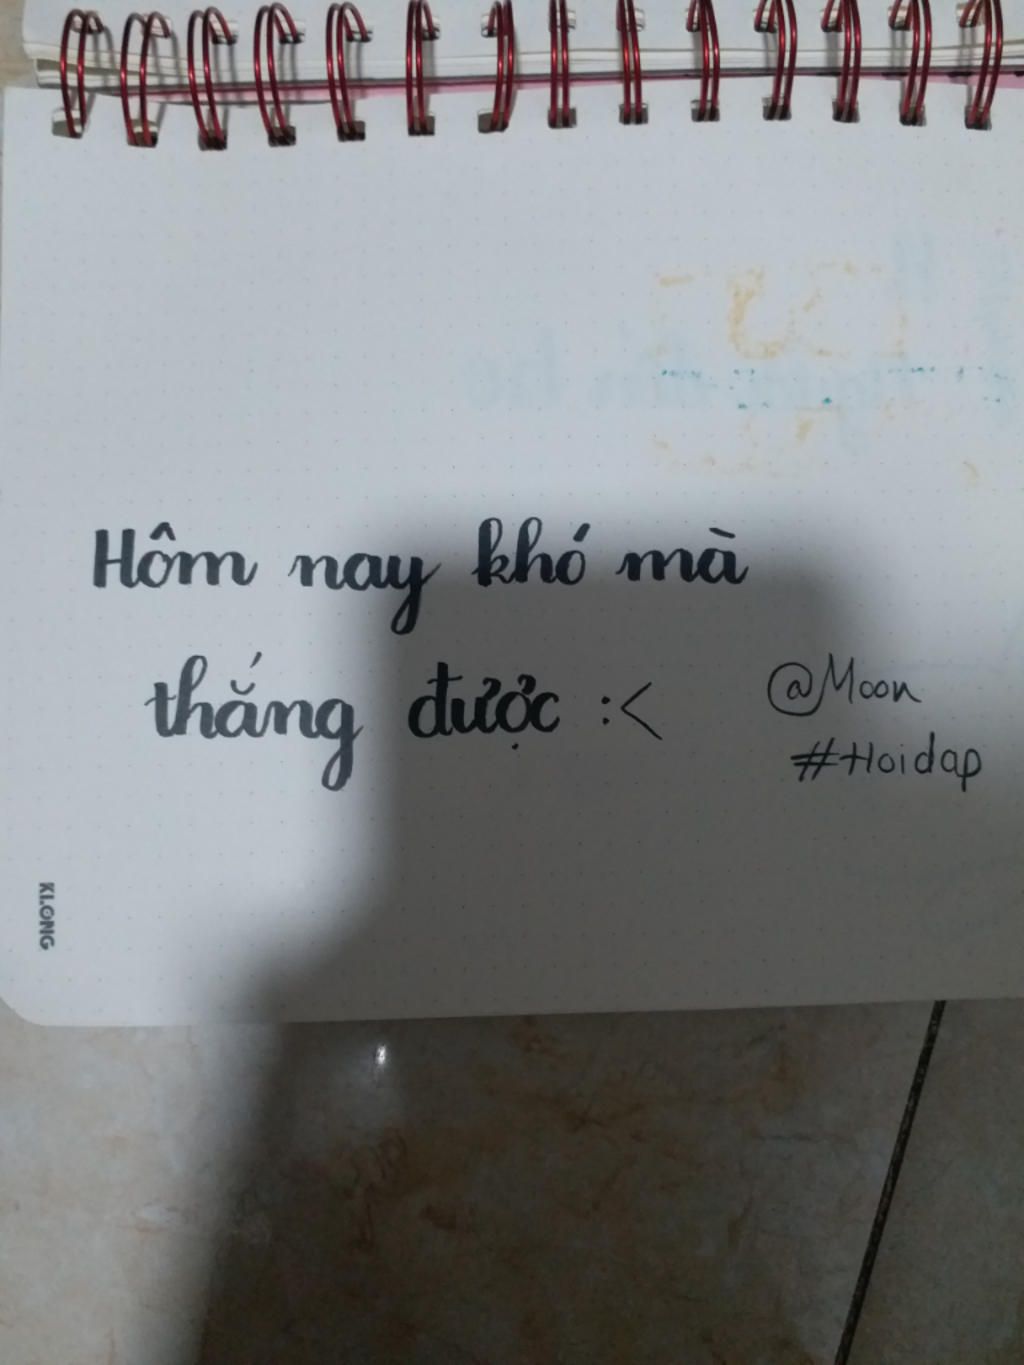 Hôm nay khó mà
thắng được :<
@Moon
#Hoidap
KLONG